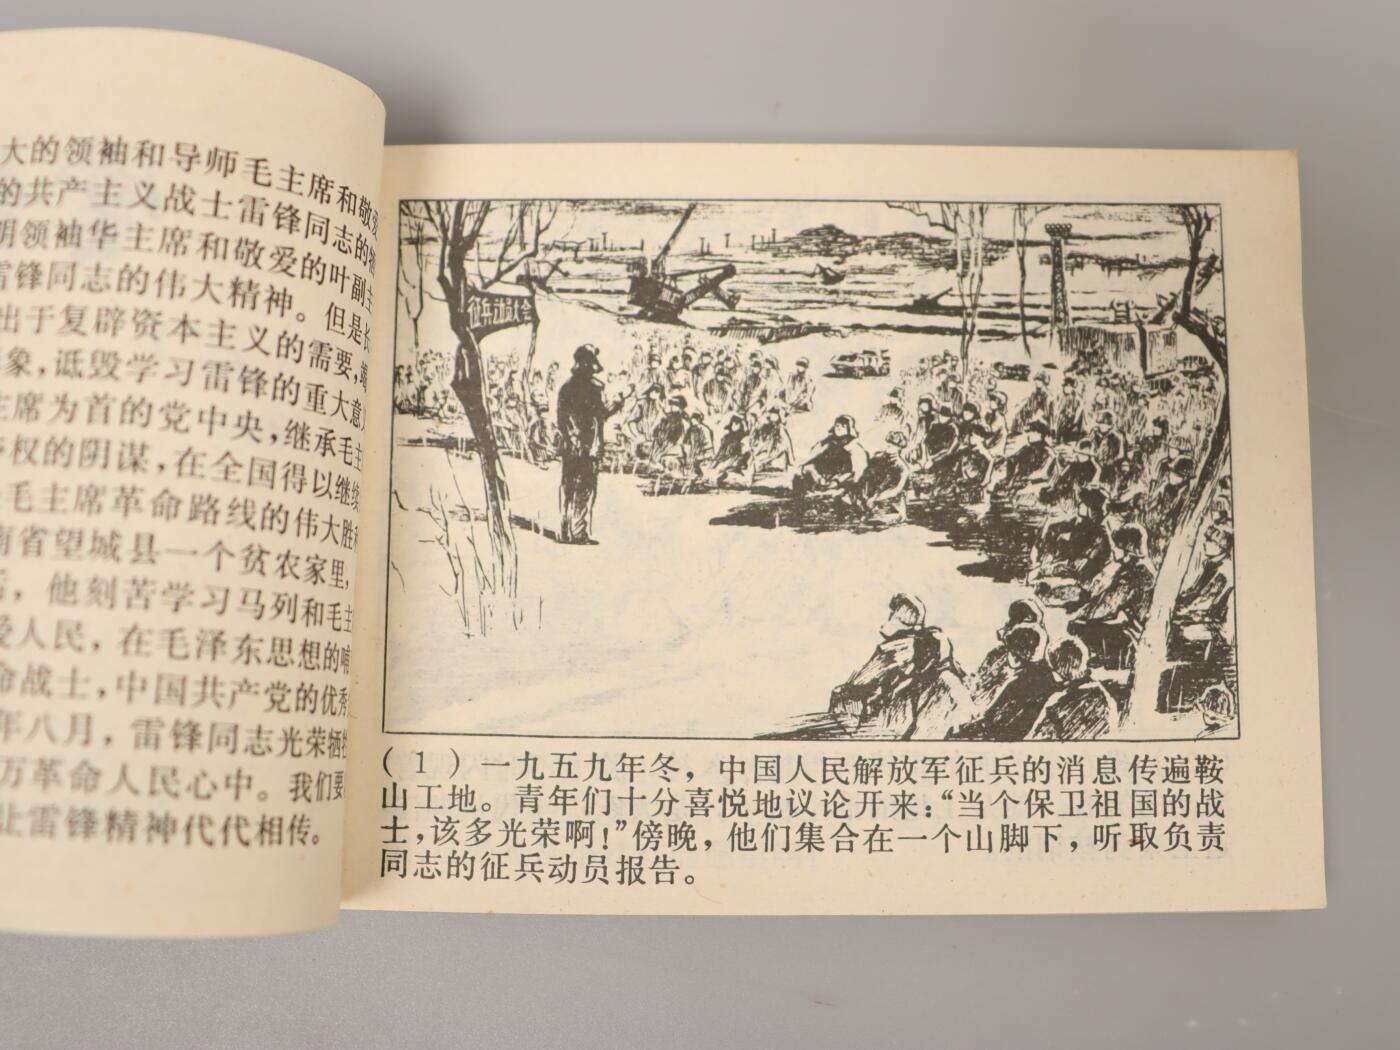 大的领袖和导师毛主席和敬爱
的共产主义战士雷锋同志的
明领袖华主席和敬爱的叶副主
雷锋同志的伟大精神。但是长
出于复辟资本主义的需要,
象,诋毁学习雷锋的重大意
主席为首的党中央,继承毛主
权的阴谋,在全国得以继续
毛主席革命路线的伟大胜利
南省望城县一个贫农家里,
后,他刻苦学习马列和毛主
爱人民,在毛泽东思想的哺
命战士,中国共产党的优秀
年八月,雷锋同志光荣牺牲
万革命人民心中。我们要
让雷锋精神代代相传。
征兵动员大会
(1)一九五九年冬,中国人民解放军征兵的消息传遍鞍
山工地。青年们十分喜悦地议论开来:“当个保卫祖国的战
士,该多光荣啊!”傍晚,他们集合在一个山脚下,听取负责
同志的征兵动员报告。